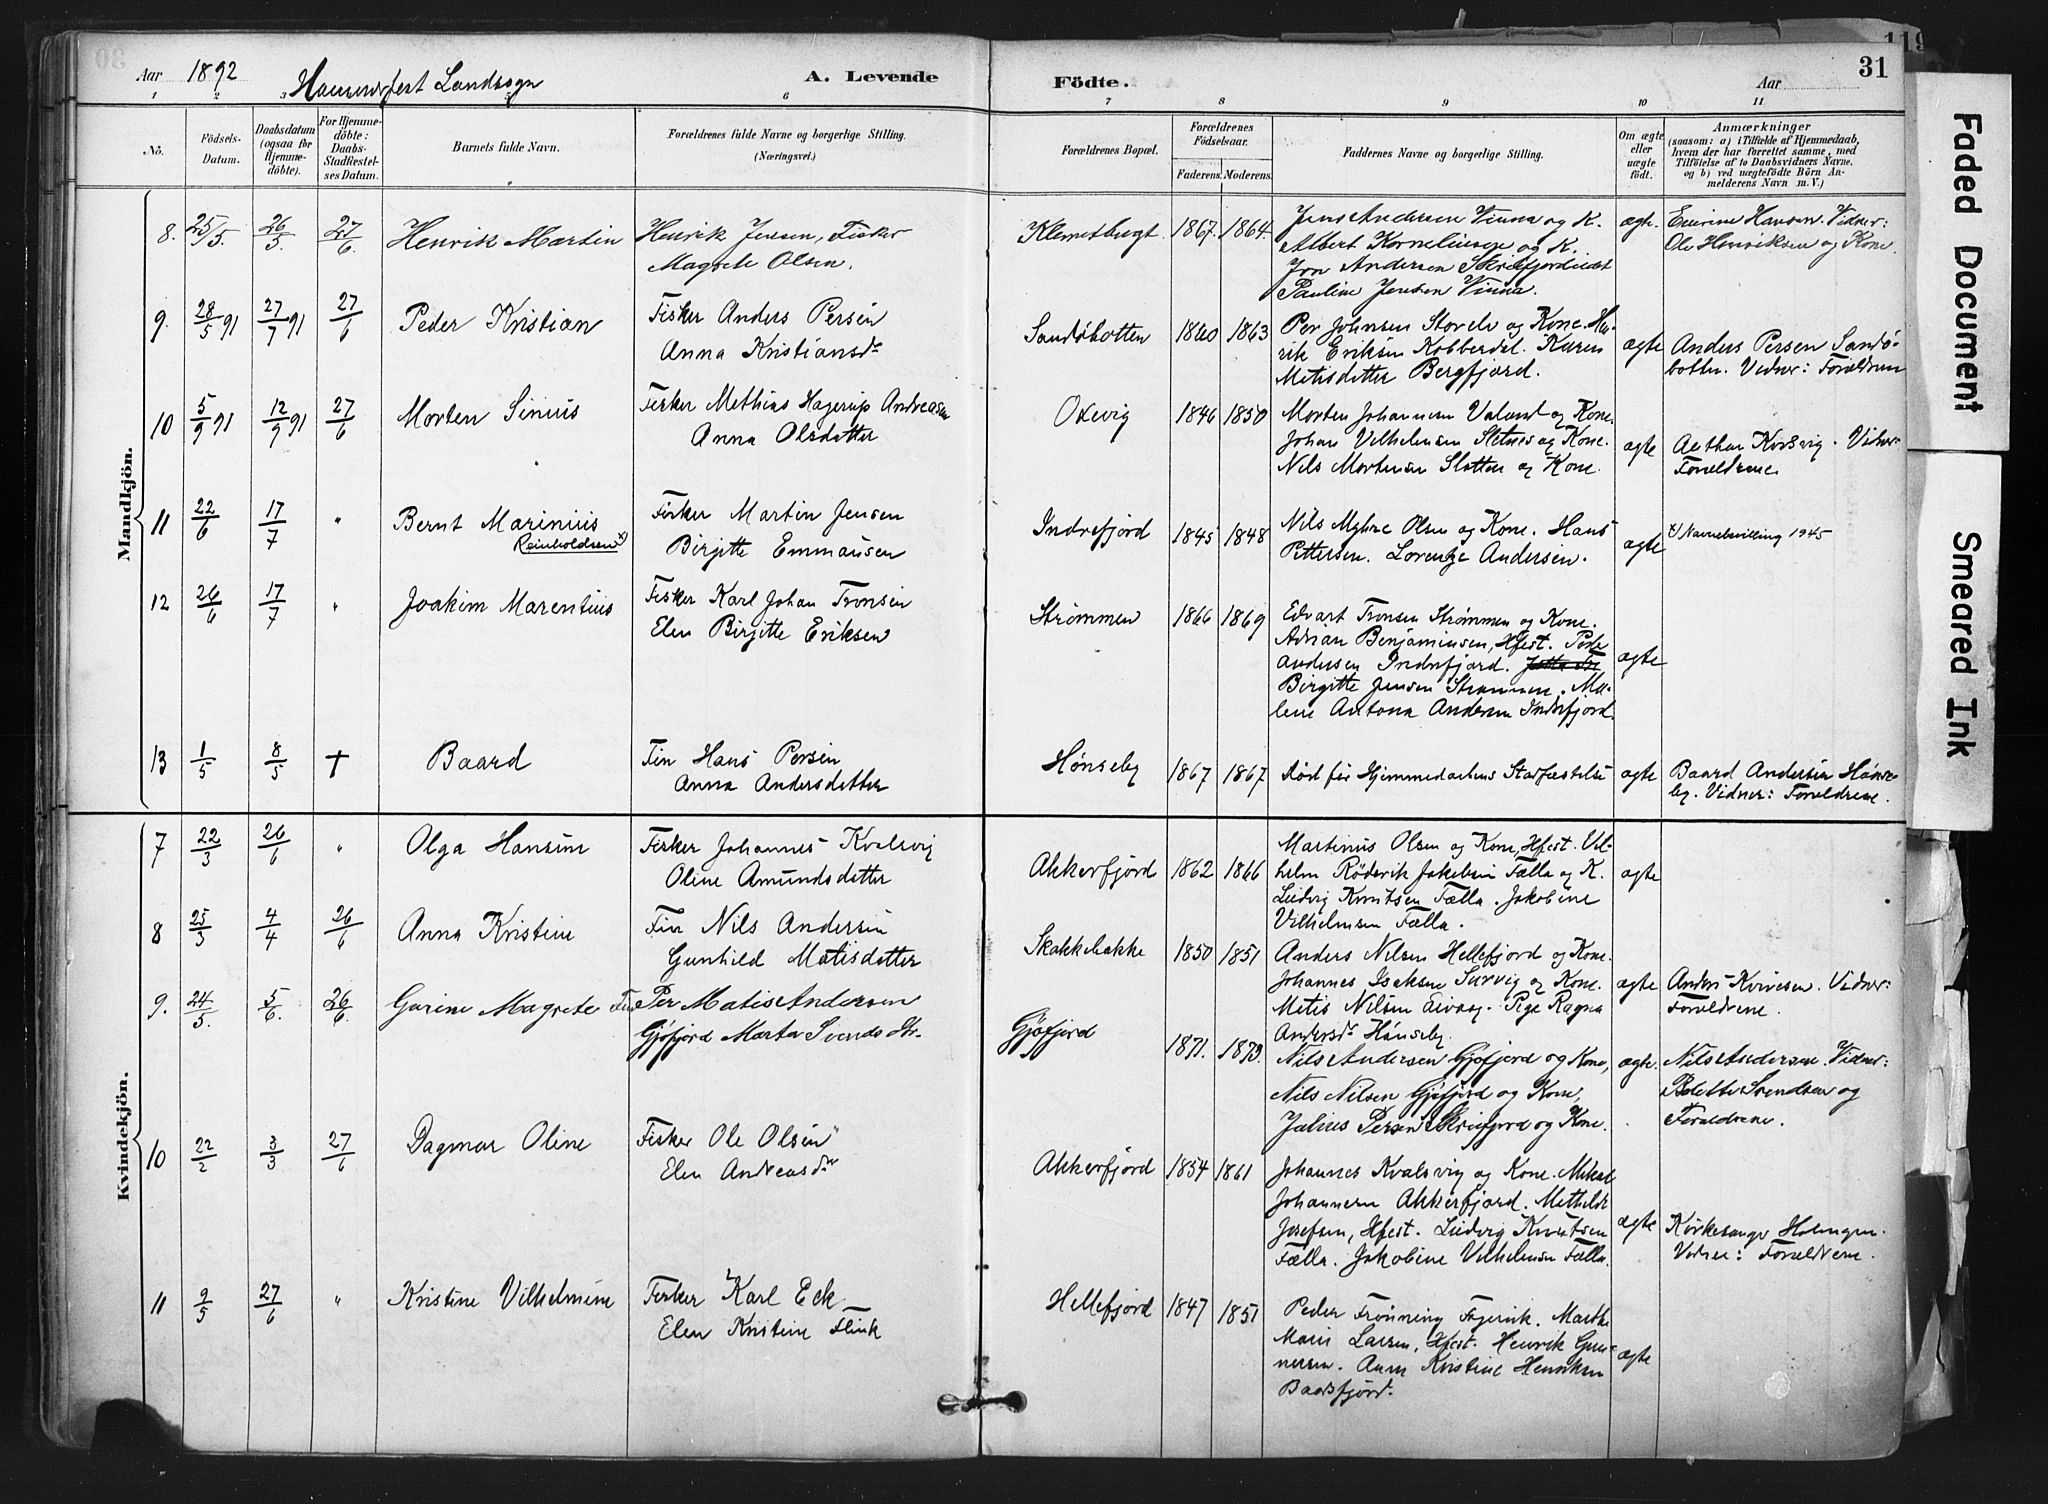 Aar 1892 Hammerfest Landsogn A. Levende Födte. Aar 31
119
1 2 3 5 6 7 8 9 10 11
No.
Födsels-Datum.
Daabsdatum (ogsaa for Hjemmedöbte).
For Hjemmedöbte: Daabs-Stadfæstelses Datum.
Barnets fulde Navn.
Forældrenes fulde Navne og borgerlige Stilling. (Næringsvei.)
Forældrenes Bopæl.
Forældrenes Födselsaar.
Faderens. Moderens.
Faddernes Navne og borgerlige Stilling.
Om ægte eller uægte födt.
Anmærkninger (saasom: a) i Tilfælde af Hjemmedaab, hvem der har forrettet samme, med Tilföielse af to Daabsvidners Navne, og b) ved uægtefödte Börn Anmelderens Navn m. V.)
Mandkjön.
8. 25/5. 26/5 27/6. Henrik Martin
Henrik Jensen, Fisker
Magrete Olsen.
Klemetbugt 1867. 1864.
Jens Andersen Vinna og K.
Albert Korneliusen og K.
Jon Andersen
Pauline Jensen Vinna.
ægte. Hansen. Vidner:
Ole Henriksen og Kone.
9. 28/5 91 27/7 91 27/6 Peder Kristian
Fisker Anders Persen
Anna Kristiansdr
Sandöbotten 1860 1863
Per Johnsen Storelv og Kone. Hen-
rik Eriksen Kobberdal. Karen
Matisdatter Bergfjord.
ægte Anders Persen Sandö-
botten. Vidner: Forældrene
10 5/9 91 12/9 91 27/6 Morten Sinius
Fisker Mathias Hagerup Andreasen
Anna Olsdatter
Oxevig 1846 1850
Morten Johannesen og Kone.
Johan Vilhelmsen Sletnes og Kone.
Nils Mortensen Slotten og Kone.
ægte Korsvig. Vidner:
Forældrene
11 22/6 17/7 " Bernt Marinius
Reinholdsen x)
Fisker Martin Jensen
Birgitte Emmausen
Indrefjord 1845 1848
Nils Myhre Olsen og Kone. Hans
Pettersen. Lorentze Andersen.
ægte x) Navnebevilling 1945
12 26/6 17/7 " Joakim Marentius
Fisker Karl Johan Tronsen
Elen Birgitte Eriksen
Strømmen 1866 1869
Edvart Tronsen Strømmen og Kone.
Adrian Benjaminsen, Hfest. Peder
Andersen Indrefjord.
Birgitte Jensen Strømmen. Ma-
lene Antona Andersen Indrefjord.
ægte
13 1/5 8/5 † Baard
Fin Hans Persen
Anna Andersdatter
Hønseby 1867 1867
Død før Hjemmedaabens Stadfæstelse
ægte Baard Andersen Hønse-
by. Vidner: Forældrene.
Kvindekjön.
7 22/3 26/6 " Olga Hansine
Fisker Johannes Kvalsvig
Oline Amundsdatter
Akkerfjord 1862 1866
Martinus Olsen og Kone, Hfest. Vil-
helm Röderik Jakobsen Fælla og K.
Ludvig Knutsen Fælla. Jakobine
Vilhelmsen Fælla.
ægte
8 25/3 4/4 26/6 Anna Kristine
Fin Nils Andersen
Gunhild Matisdatter
Skakkebakke 1850 1851
Anders Nilsen Hellefjord og Kone.
Johannes Isaksen Survig og Kone.
Matis Nilsen Pige Ragna
Andersdr Hönseby.
ægte Anders Vidner:
Forældrene.
9. 24/5. 5/6. 26/6. Gurine Magrete
Fin Per Matis Andersen
Gjöfjord Marta Svends Dtr.
Gjöfjord 1871. 1873.
Nils Andersen Gjöfjord og Kone,
Nils Nilsen Gjöfjord og Kone,
Julius Persen Skreifjord og Kone.
ægte. Nils Andersen. Vidner:
Svendsen og
Forældrene.
10 22/2 3/3 27/6 Dagmar Oline
Fisker Ole Olsen
Elen Andreasdr
Akkerfjord 1854 1861
Johannes Kvalsvig og Kone. Mikal
Johannesen Akkerfjord. Mathilde
Josefsen, Hfest. Ludvig Knutsen
Fælla. Jakobine Vilhelmsen Fælla.
ægte Kirkesanger
Vidner: Forældrene.
11 9/5 27/6 " Kristine Vilhelmine
Fisker Karl Eck
Elen Kristine Flink
Hellefjord 1847 1851
Peder Trönning Marthe
Marie Larsen, Hfest. Henrik Gun-
nersen. Anne Kristine Henriksen
Baadsfjord.
ægte
Faded Document
Smeared Ink